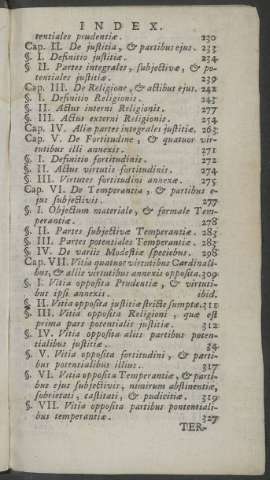 INDEX.
tentiales prudentiæ. 230
Cap. II. De justitia, & partibus ejus. 233
§. I. Definitio justitiæ. 234
§. II. Partes integrales, subjectivæ, & po-
tentiales justitiæ. 239
Cap. III. De Religione, & actibus ejus. 242
§. I. Definitio Religionis. 243
§. II. Actus interni Religionis. 277
§. III. Actus externi Religionis. 254
Cap. IV. Aliæ partes integrales justitiæ. 263
Cap. V. De Fortitudine, & quatuor vir-
tutibus illi annexis. 271
§. I. Definitio fortitudinis. 272
§. II. Actus virtutis fortitudinis. 274
§. III. Virtutes fortitudini annexæ. 275
Cap. VI. De Temperantia, & partibus e-
jus subjectivis. 277
§. I. Objectum materiale, & formale Tem-
perantiæ. 278
§. II. Partes subjectivæ Temperantiæ. 283
§. III. Partes potentiales Temperantiæ. 283
§. IV. De variis Modestiæ speciebus. 298
Cap. VII. Vitia quatuor virtutibus Cardinali-
bus, & aliis virtutibus annexis opposita. 309
§. I. Vitia opposita Prudentiæ, & virtuti-
bus ipsi annexis. ibid.
§. II. Vitia opposita justitiæ stricte sumptæ. 311
§. III. Vitia opposita Religioni, quæ est
prima pars potentialis justitiæ. 312
§. IV. Vitia opposita aliis partibus poten-
tialibus justitiæ. 34
§. V. Vitia opposita fortitudini, & parti-
bus potentialibus illius. 317
§. VI. Vitia opposita Temperantiæ, & parti-
bus ejus subjectivis, nimirum abstinentiæ,
sobrietati, castitati, & pudicitiæ. 319
§. VII. Vitia opposita partibus pontentiali-
bus temperantiæ. 327
TER-